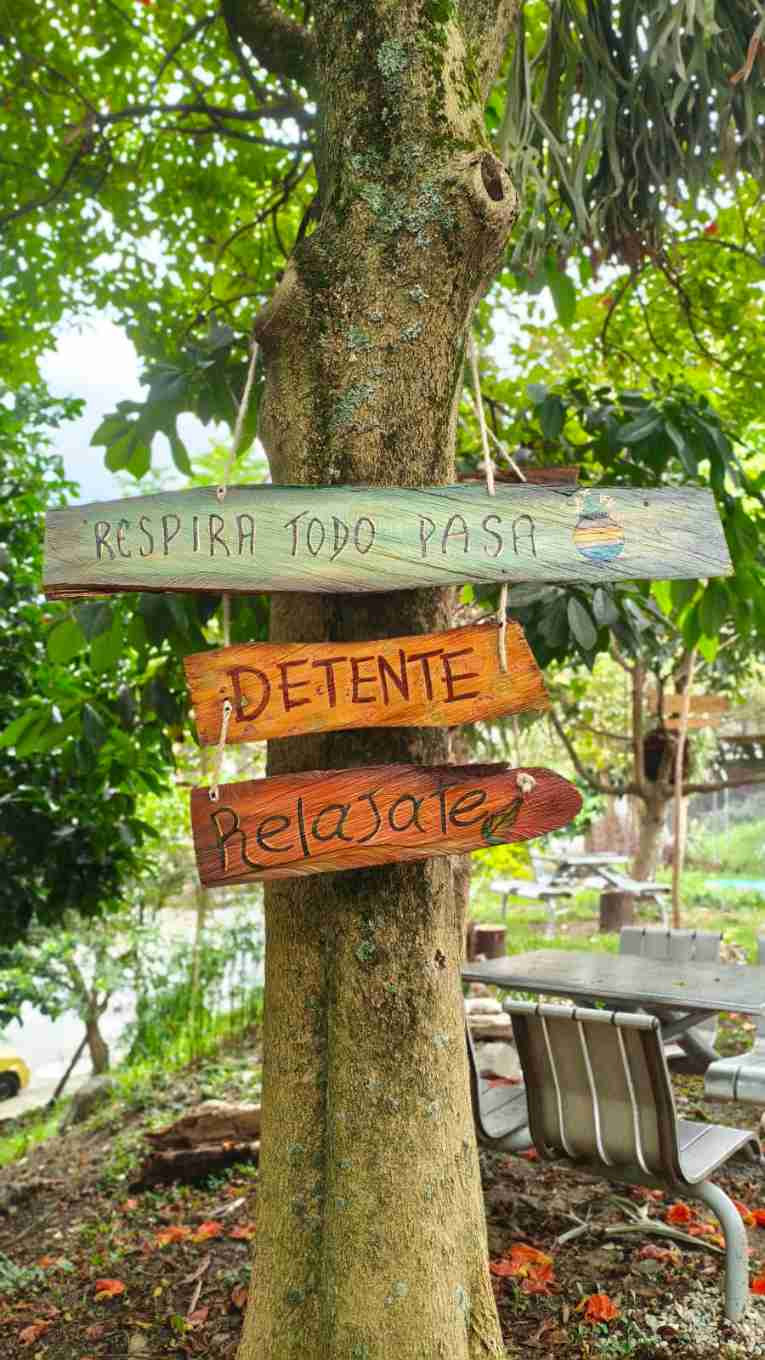 RESPIRA TODO PASA
DETENTE
RelaJaTe